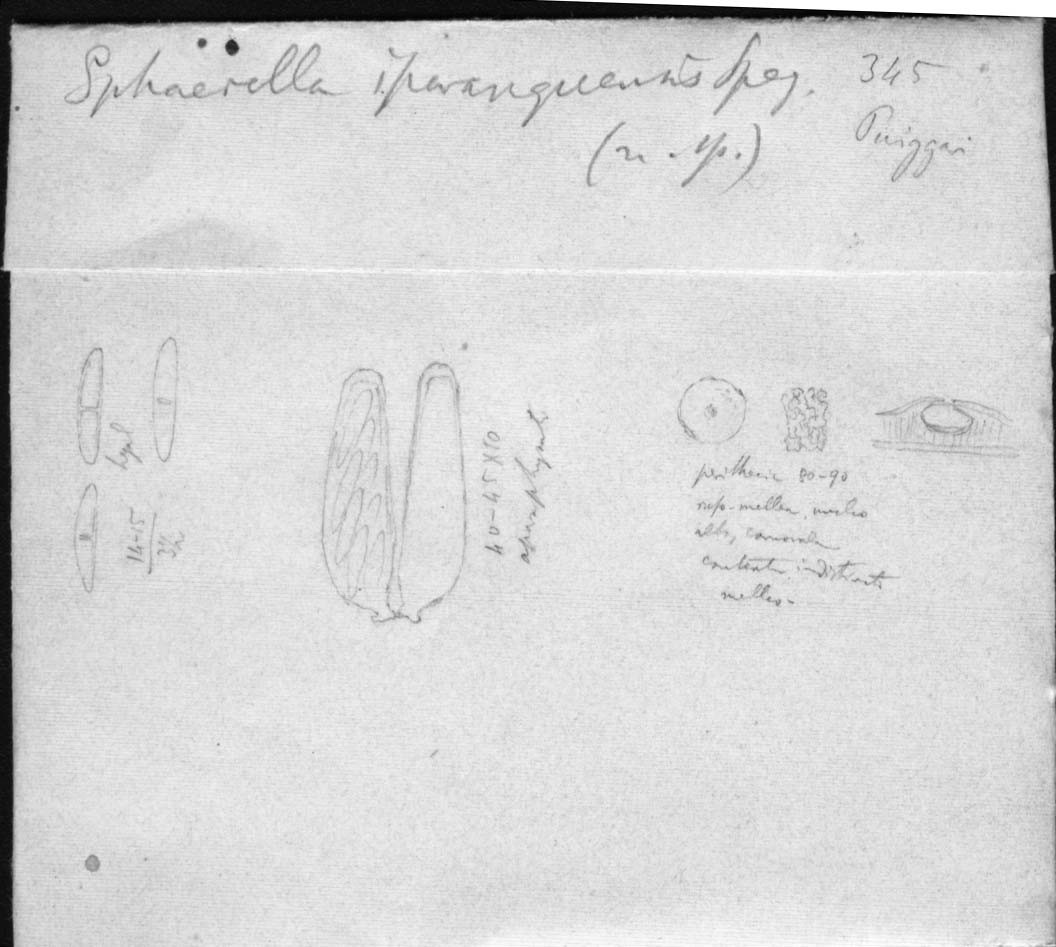 Sphaerella iporanguensis Speg. 345
(n. sp.) Puiggari
hyal
14-15
40-45X10
aparaphysat
perithecia 80-90
rufo-mellea, nucleo
albo,
contextu indistincte
melleo-